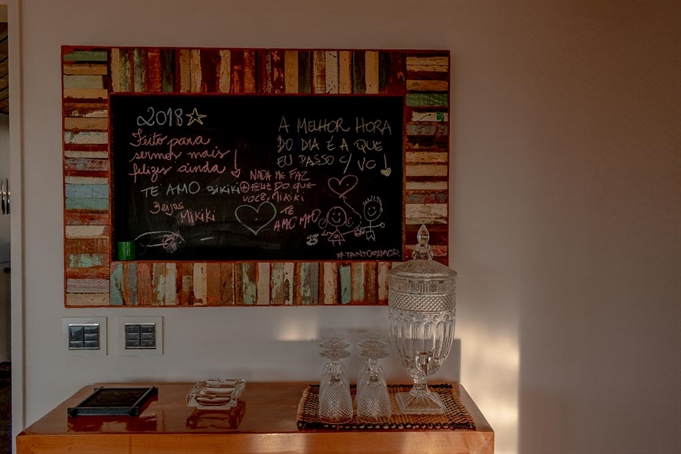 2018
Feito para
sermos mais
felizes ainda!
TE AMO Bikiki
Beijos
MIKIKI
A MELHOR HORA
DO DIA É A QUE
EU PASSO C/ VC!
NADA ME FAZ
+ FELIZ DO QUE
VOCÊ, MIKIKI
TE
AMO MTO
#TANTOAMOR